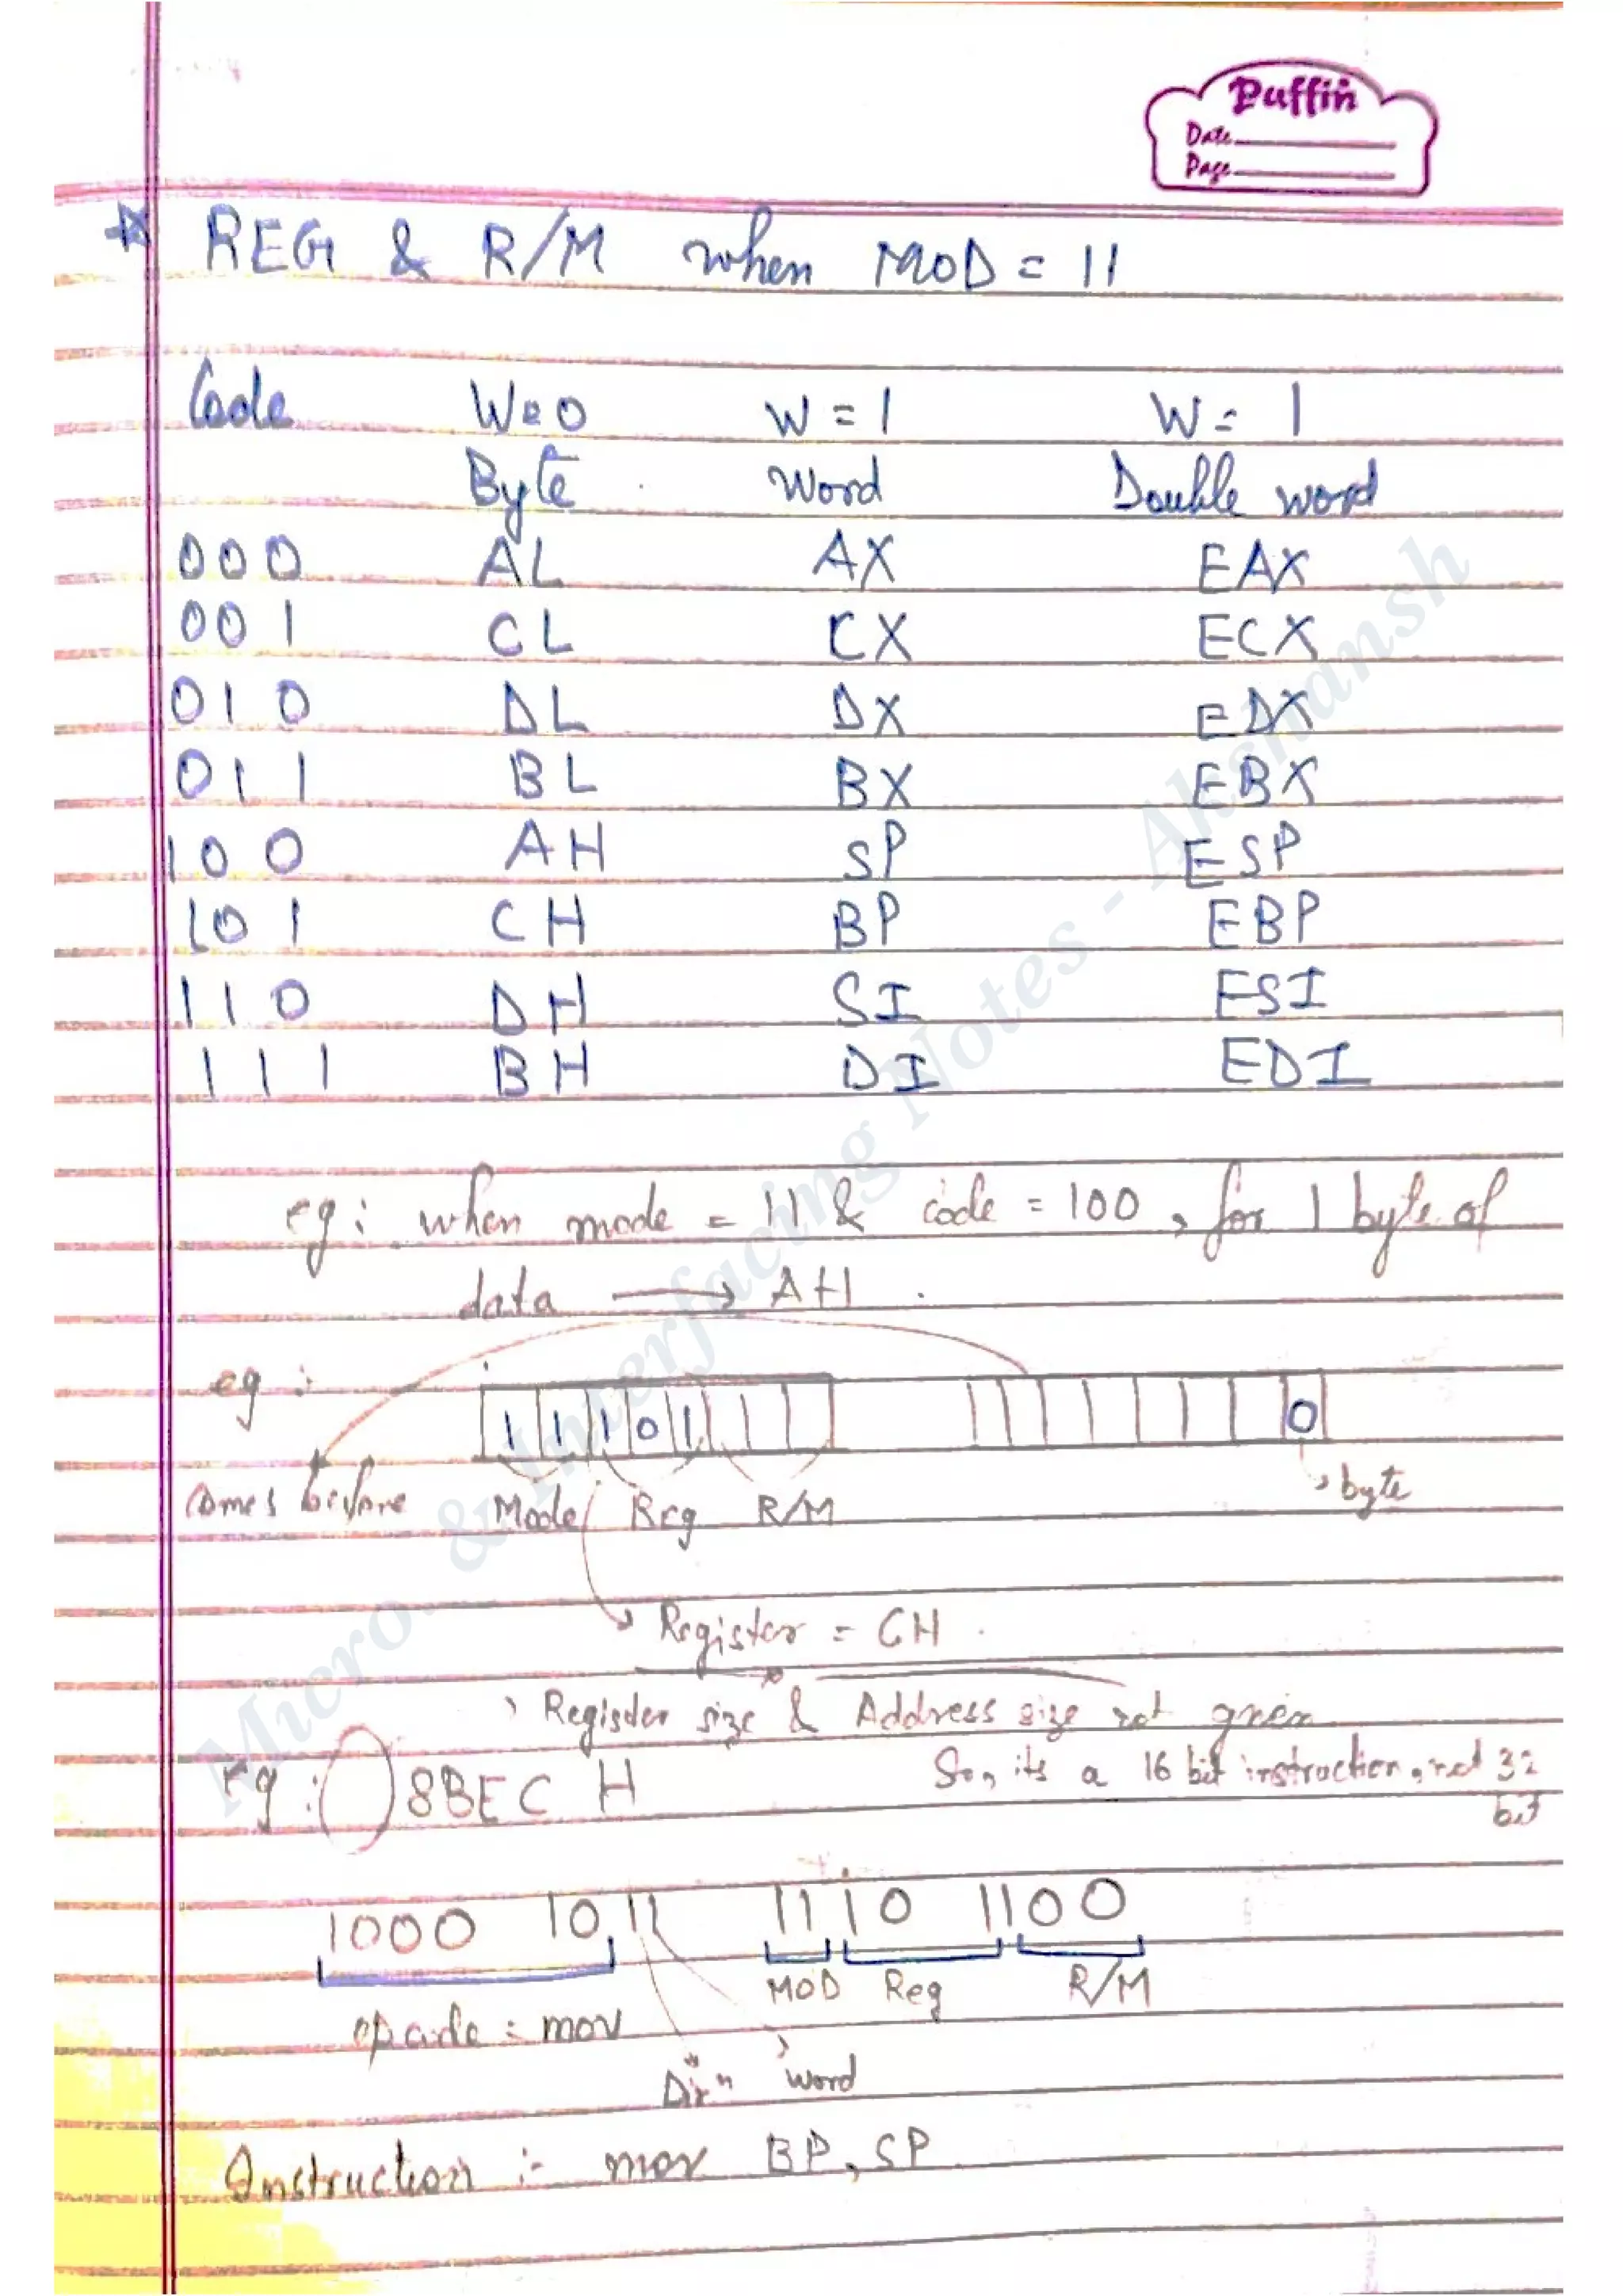 Puffin
Date
Page
REG & R/M when MOD = 11
Code W=0 W = 1 W = 1
Byte Word Double word
000 AL AX EAX
001 CL CX ECX
010 DL DX EDX
011 BL BX EBX
100 AH SP ESP
101 CH BP EBP
110 DH SI ESI
111 BH DI EDI
eg: when mode = 11 & code = 100, for 1 byte of
data → AH.
eg :
1 1 1 0 1 0
Comes before Mode Reg R/M byte
Register = CH
Register size & Address size not given
So, its a 16 bit instruction, not 32
bit
eg: 8BEC H
1000 1011 1110 1100
MOD Reg R/M
opcode : mov
Dirn word
Instruction :- mov BP, SP
Micro. & Interfacing Notes - Akshansh